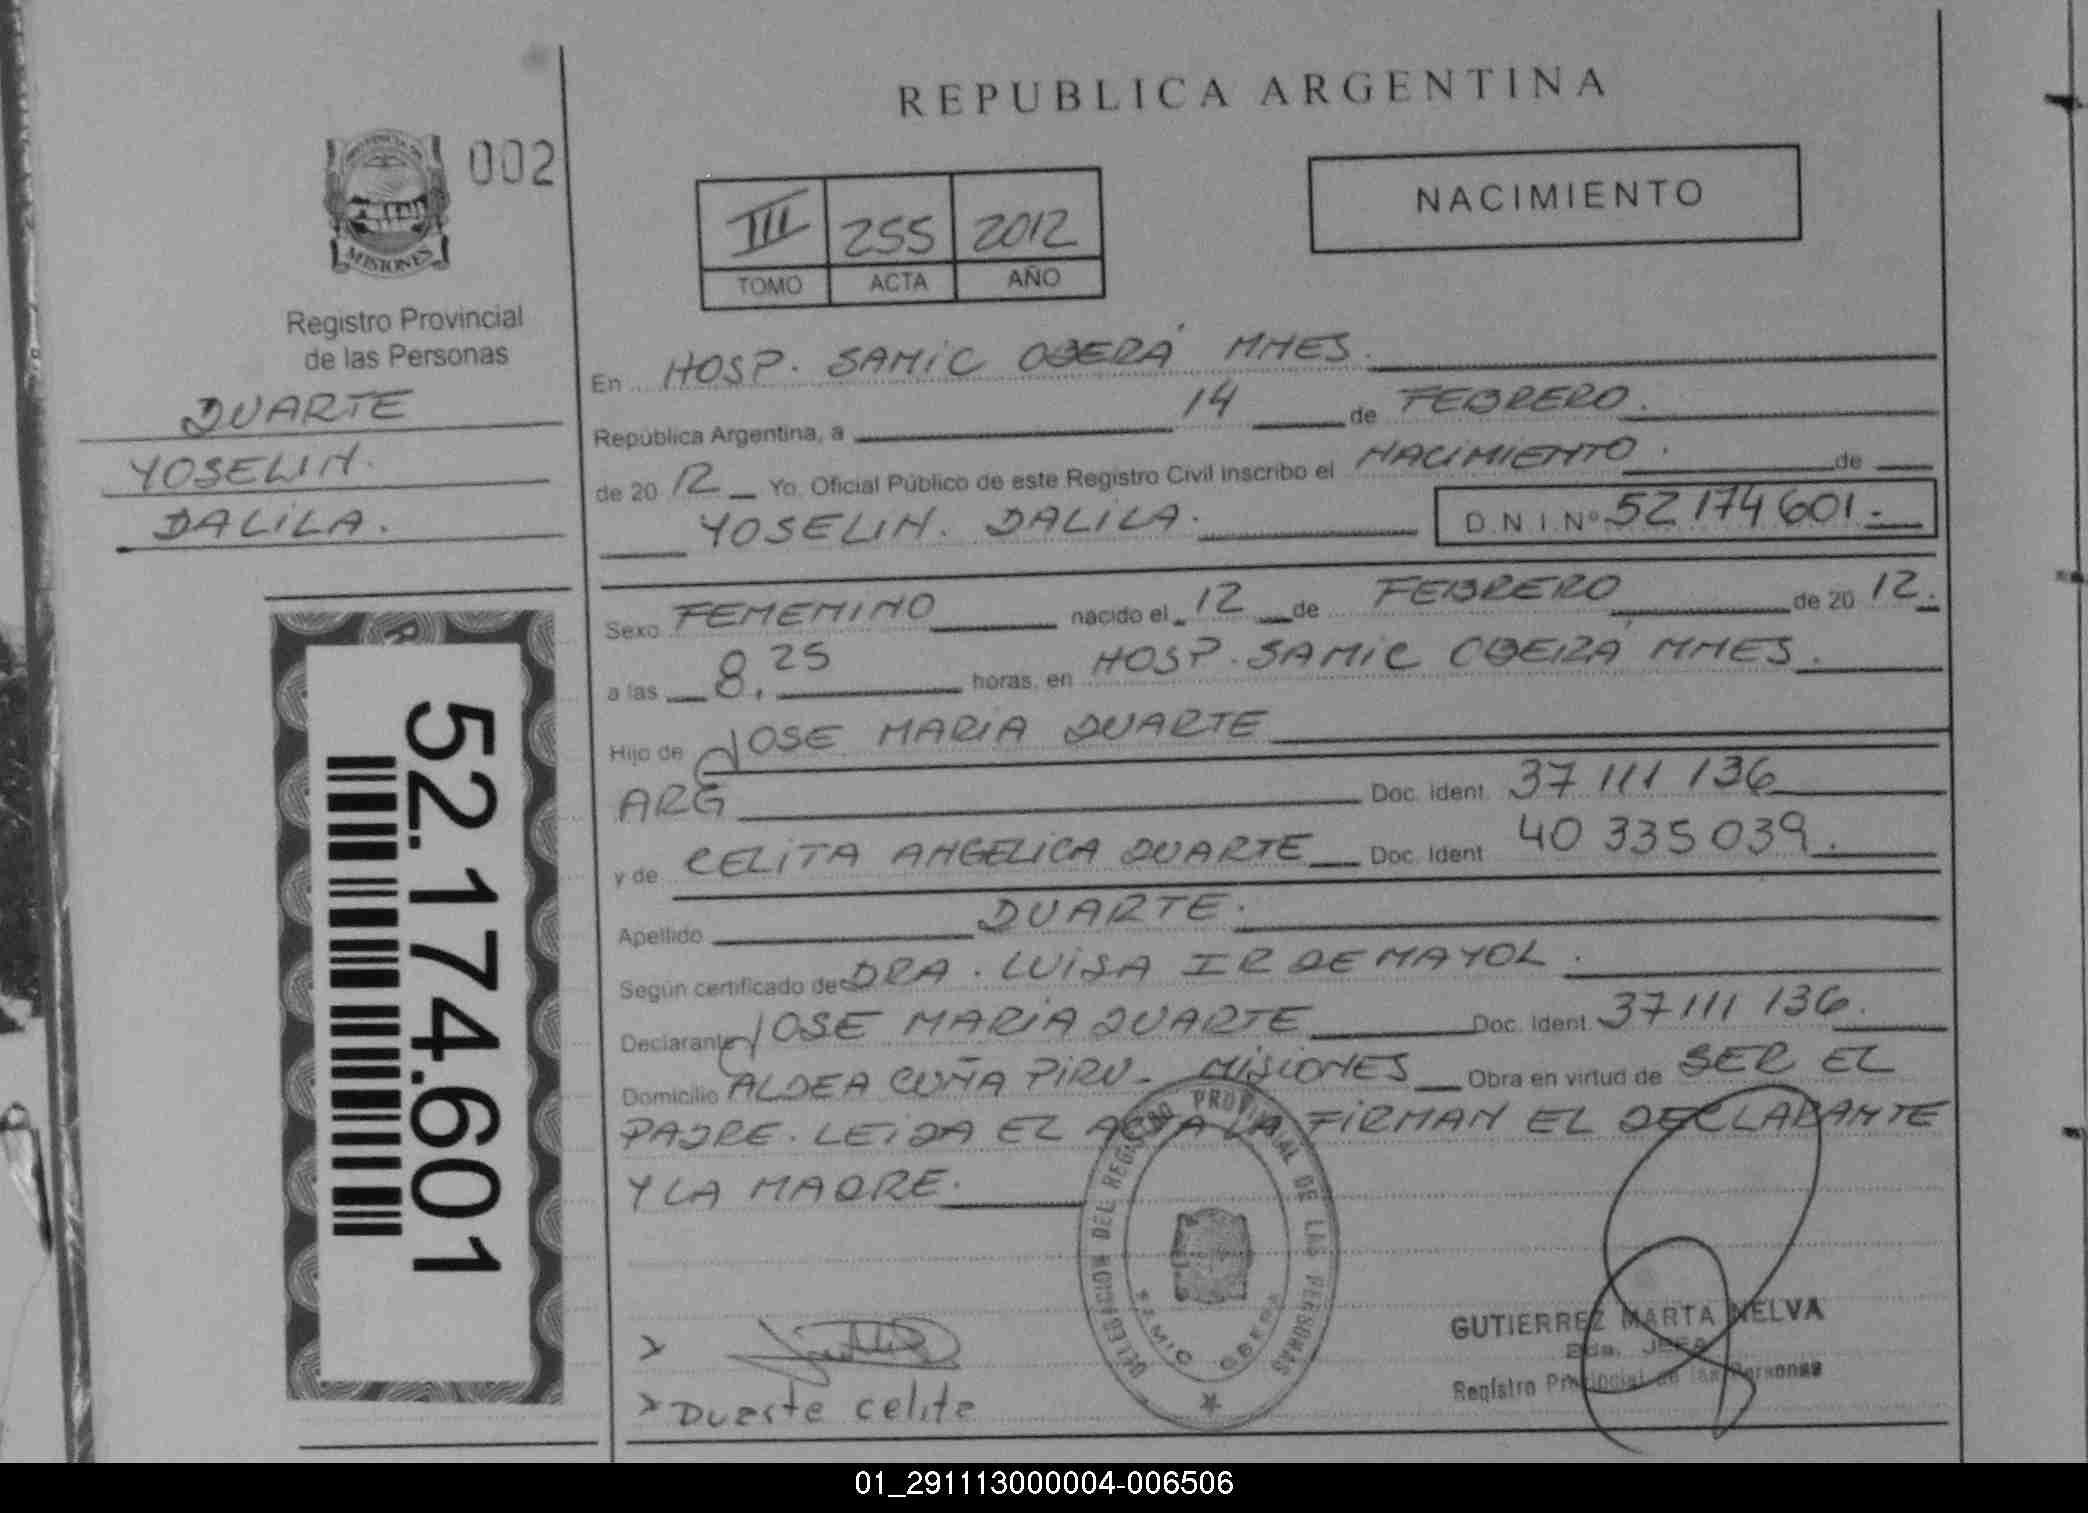 REPUBLICA ARGENTINA
002
PROVINCIA DE
MISIONES
Registro Provincial
de las Personas
DUARTE
YOSELIN.
DALILA.
52.174.601
III 255 2012
TOMO ACTA AÑO
NACIMIENTO
En HOSP. SAMIC OBERÁ MNES.
República Argentina, a 14 de FEBRERO.
de 20 12 Yo, Oficial Público de este Registro Civil inscribo el NACIMIENTO. de
YOSELIN. DALILA. D.N.I. Nº 52 174 601.-
Sexo FEMENINO nacido el 12 de FEBRERO de 20 12.
a las 8,25 horas, en HOSP. SAMIC OBERÁ MNES.
Hijo de JOSE MARIA DUARTE
ARG Doc. Ident. 37 111 136
y de CELITA ANGELICA DUARTE Doc. Ident. 40 335 039.
Apellido DUARTE.
Según certificado de DRA. LUISA IR DE MAYOL.
Declarante JOSE MARIA DUARTE Doc. Ident. 37 111 136.
Domicilio ALDEA CUÑA PIRU - MISIONES Obra en virtud de SER EL
PADRE. LEIDA EL ACTA LA FIRMAN EL DECLARANTE
Y LA MADRE.
DELEGACION DEL REGISTRO PROVINCIAL DE LAS PERSONAS
OBERA
GUTIERREZ MARTA NELVA
2da. JEFA
Registro Provincial de las Personas
> Duarte celita
01_291113000004-006506